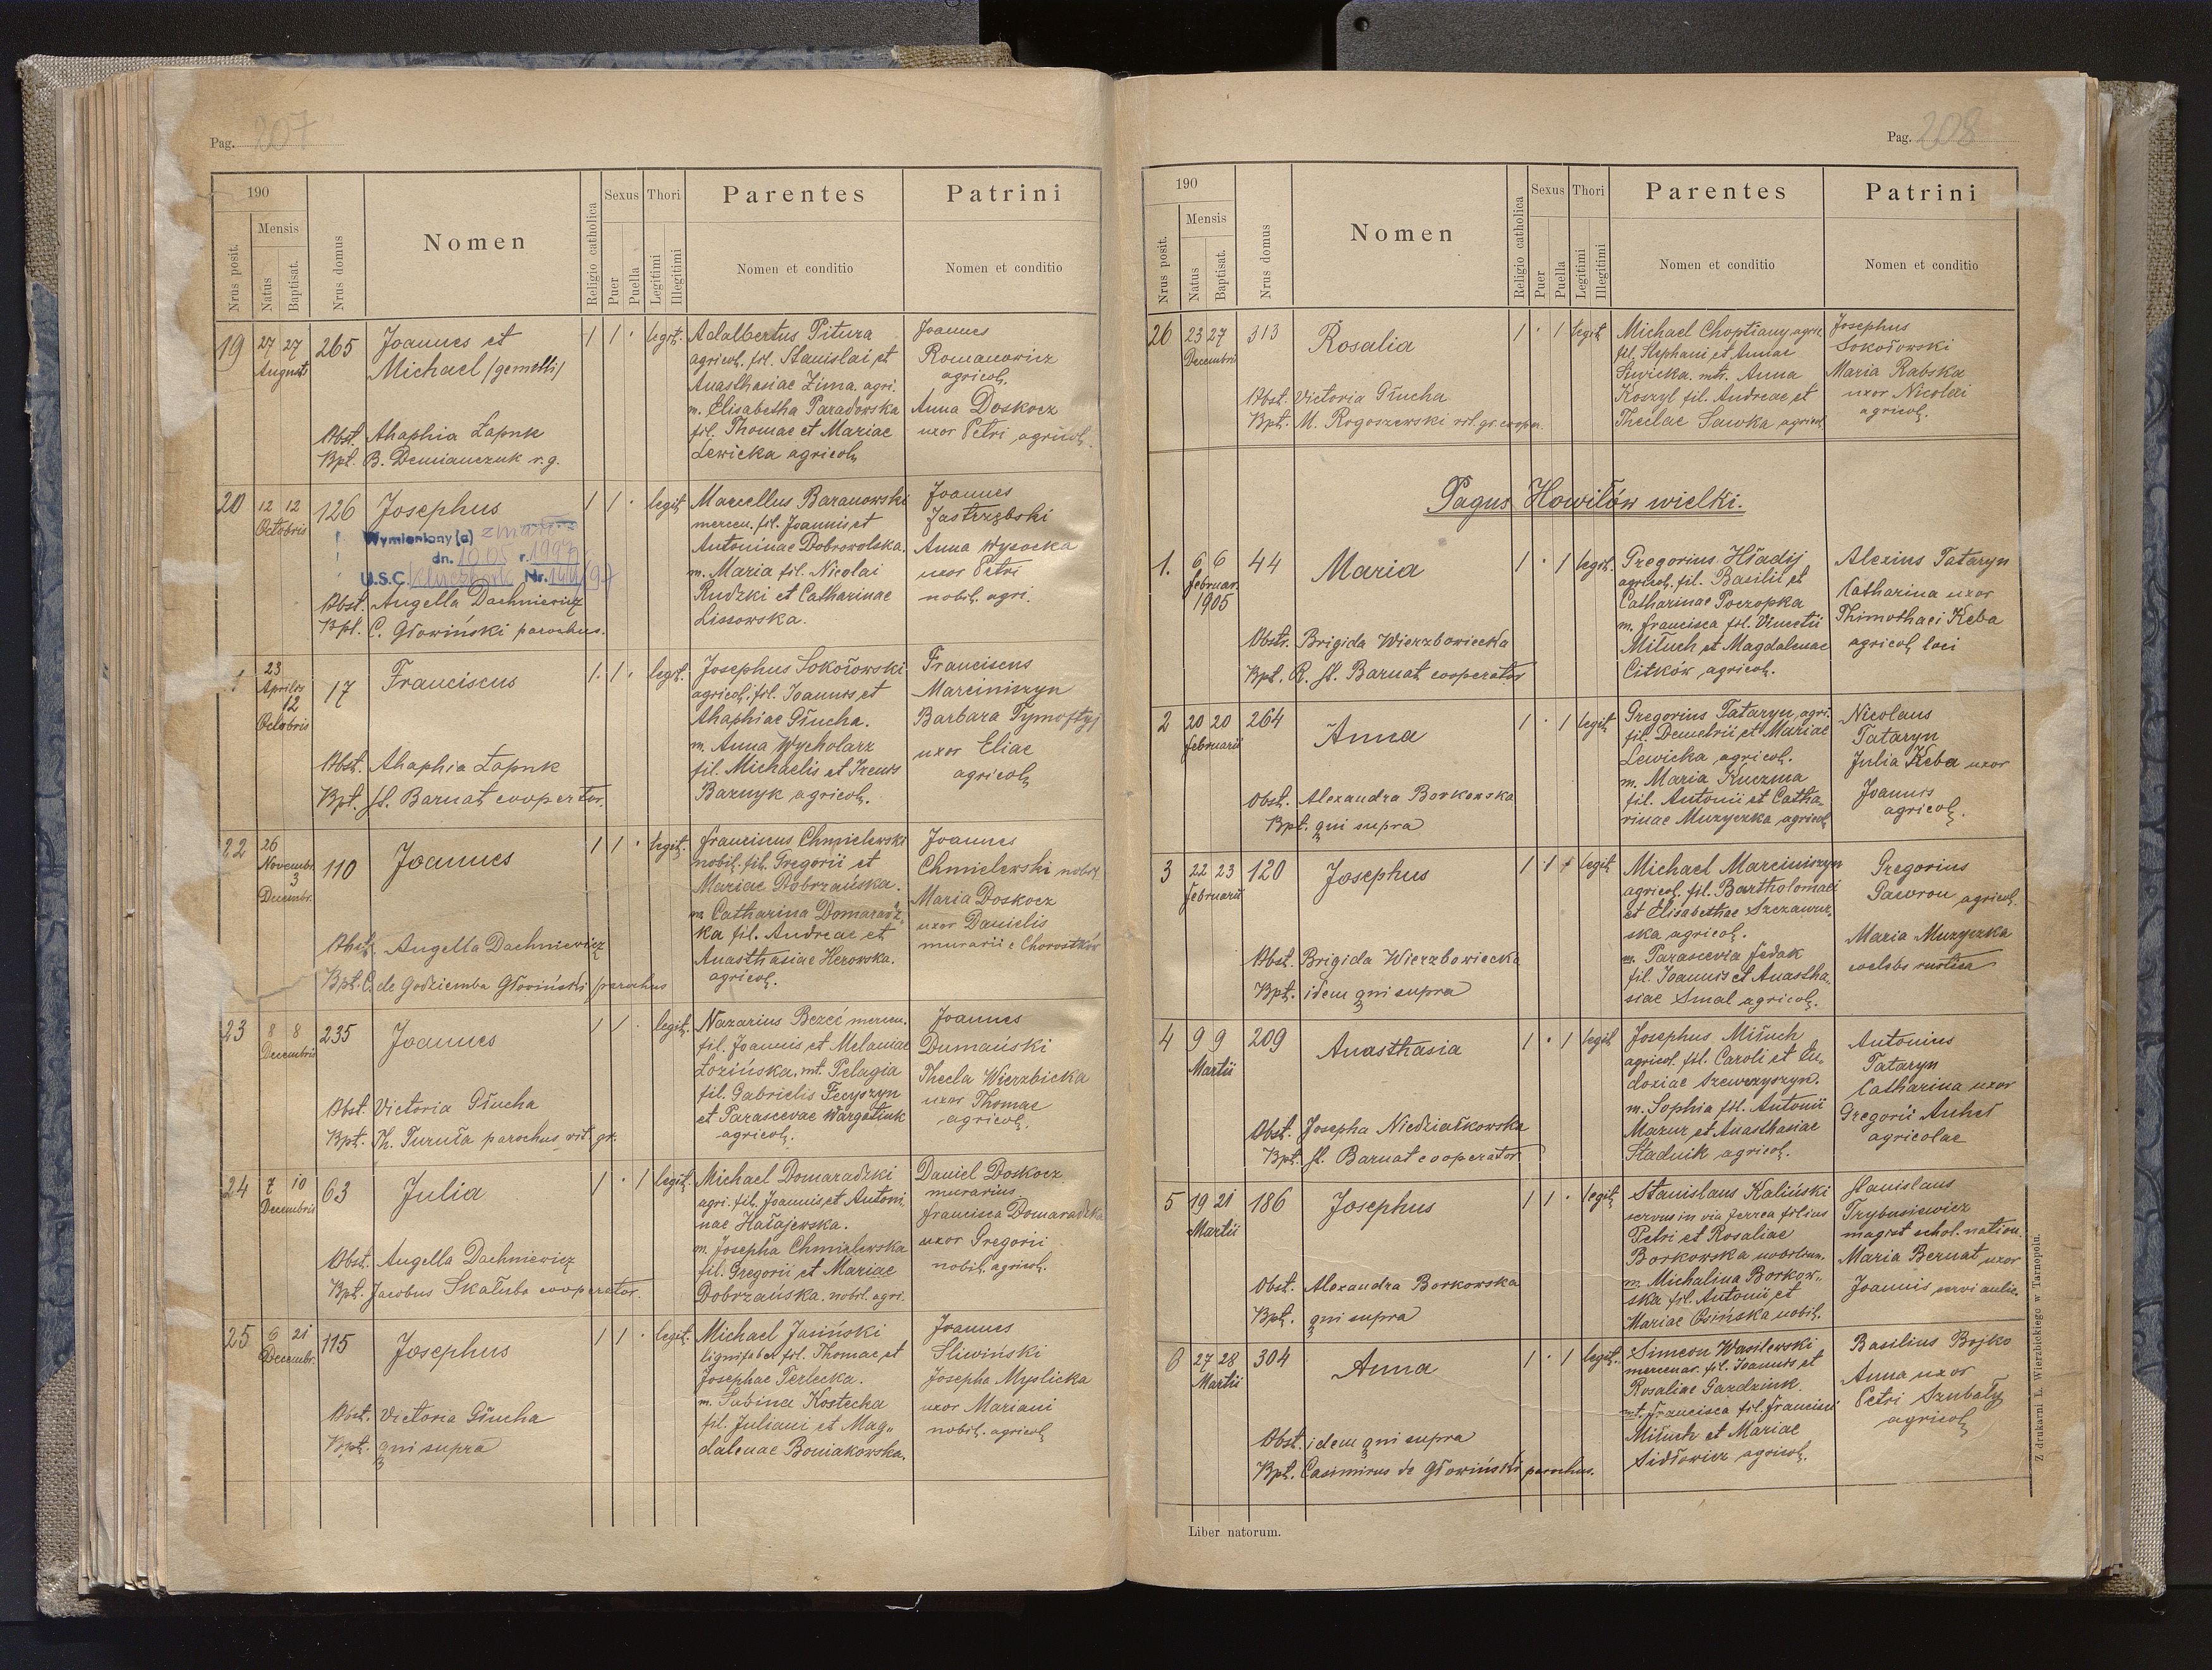 Pag. 207
190
Nrus posit.
Mensis
Natus
Baptisat.
Nrus domus
Nomen
Religio catholica
Sexus
Puer
Puella
Thori
Legitimi
Illegitimi
Parentes
Nomen et conditio
Patrini
Nomen et conditio
19
27 27
Augusti
265
Joannes et
Michael /gemelli/
Obst. Ahaphia Łapuk
Bpt. B. Demianczuk r. g.
1 1 · legit.
Adalbertus Pitura
agricol. fil. Stanislai et
Anasthasiae Zima. agri.
m. Elisabetha Paradowska
fil. Thomae et Mariae
Lewicka agricol.
Joannes
Romanowicz
agricol.
Anna Doskocz
uxor Petri agricol.
20
12 12
Octobris
126
Josephus
Wymieniony (a) zmarł
dn. r. 1997
U.S.C. Nr.
Obst. Angella Dachniewicz
Bpt. C. Głowiński parochus.
1 1 · legit.
Marcellus Baranowski
mercen. fil. Joannis et
Antoninae Dobrowolska.
m. Maria fil. Nicolai
Rudzki et Catharinae
Lissowska.
Joannes
Jastrzębski
Anna Wysocka
uxor Petri
nobil. agri.
23
Aprilis
12
Octobris
17
Franciscus
Obst. Ahaphia Łapuk
Bpt. St. Barnat cooperator.
1 · 1 · legit.
Josephus Sokołowski
agricol. fil. Joannis et
Ahaphiae Głucha.
m. Anna Wycholarz
fil. Michaelis et Irenis
Barnyk agricol.
Franciscus
Marciniszyn
Barbara Tymoftyj
uxor Eliae
agricol.
22
26
Novembr.
3
Decembr.
110
Joannes
Obst. Angella Dachniewicz
Bpt. C. de Godziemba Głowiński /parochus
1 1 · legit.
Franciscus Chmielewski
nobil. fil. Gregorii et
Mariae Dobrzańska.
m. Catharina Domaradz-
ka fil. Andreae et
Anasthasiae Herowska.
agricol.
Joannes
Chmielewski nobil.
Maria Doskocz
uxor Danielis
murarii e Chorostków
23
8 8
Decembris
235
Joannes
Obst. Victoria Głucha
Bpt. Th. Turuła parochus rit. gr.
1 1 · legit.
Nazarius Bezeć mercen.
fil. Joannis et Melaniae
Łozińska. mt. Pelagia
fil. Gabrielis Fecyszyn
et Parascevae Wargatiuk
agricol.
Joannes
Dumański
Thecla Wierzbicka
uxor Thomae
agricol.
24
7 10
Decembris
63
Julia
Obst. Angella Dachniewicz
Bpt. Jacobus Skałuba cooperator.
1 · 1 legit.
Michael Domaradzki
agri. fil. Joannis et Antoni-
nae Hałajewska.
m. Josepha Chmielewska
fil. Gregorii et Mariae
Dobrzańska. nobil. agri.
Daniel Doskocz
murarius.
Francisca Domaradzka
uxor Gregorii
nobil. agricol.
25
6 21
Decembr.
115
Josephus
Obst. Victoria Głucha
Bpt. qui supra
1 1 · legit.
Michael Jasiński
lignifaber fil. Thomae et
Josephae Terlecka.
m. Sabina Kostecka
fil. Juliani et Mag-
dalenae Boniakowska.
Joannes
Śliwiński
Josepha Myslicka
uxor Mariani
nobil. agricol.
Pag. 208
190
Nrus posit.
Mensis
Natus
Baptisat.
Nrus domus
Nomen
Religio catholica
Sexus
Puer
Puella
Thori
Legitimi
Illegitimi
Parentes
Nomen et conditio
Patrini
Nomen et conditio
26
23 27
Decembris
313
Rosalia
Obst. Victoria Głucha
Bpt. M. Rogoszewski rit. gr. cooper.
1 · 1 legit.
Michael Choptiany agric.
fil. Stephani et Annae
Siwicka. mtr. Anna
Koszyl fil. Andreae et
Theclae Sawka agricol.
Josephus
Sokołowski
Maria Rabska
uxor Nicolai
agricol.
Pagus Howiłów wielki.
1.
6 6
Februar.
1905
44
Maria
Obstr. Brigida Wierzbowiecka
Bpt. R. St. Barnat cooperator
1 · 1 legit.
Gregorius Hładij
agricol. fil. Basilii et
Catharinae Poczopka
m. Francisca fil. Vincetii
Miłuch et Magdalenae
Citków agricol.
Alexius Tataryn
Catharina uxor
Thimothaei Keba
agricol. loci
2
20 20
Februarii
264
Anna
Obst. Alexandra Borkowska
Bpt. qui supra
1 · 1 legit.
Gregorius Tataryn, agri.
fil. Demetrii et Mariae
Lewicka agricol.
m. Maria Kuczma
fil. Antonii et Catha-
rinae Muzyczka agricol.
Nicolaus
Tataryn
Julia Keba uxor
Joannis
agricol.
3
22 23
Februarii
120
Josephus
Obst. Brigida Wierzbowiecka
Bpt. idem qui supra
1 1 · legit.
Michael Marciniszyn
agricol. fil. Bartholomaei
et Elisabethae Szczawur-
ska agricol.
m. Parascevia Fedak
fil. Joannis et Anastha-
siae Smal agricol.
Gregorius
Gawron agricol.
Maria Muzyczka
coelebs rustica
4
9 9
Martii
209
Anasthasia
Obst. Josepha Niedziałkowska
Bpt. St. Barnat cooperator
1 · 1 legit.
Josephus Miłuch
agricol. fil. Caroli et Eu-
doxiae Szewczyszyn.
m. Sophia fil. Antonii
Mazur et Anasthasiae
Stadnik agricol.
Antonius
Tataryn
Catharina uxor
Gregorii Anheł
agricolae
5
19 21
Martii
186
Josephus
Obst. Alexandra Borkowska
Bpt. qui supra
1 1 · legit.
Stanislaus Kaliński
servus in via ferrea filius
Petri et Rosaliae
Borkowska nobilium.
m. Michalina Borkow-
ska fil. Antonii et
Mariae Osińska nobil.
Stanislaus
Trybusiewicz
magist schol. nation.
Maria Bernat uxor
Joannis servi aulic.
6
27 28
Martii
304
Anna
Obst. idem qui supra
Bpt. Casimirus de Głowiński parochus.
1 · 1 legit.
Simeon Wasilewski
mercenar. fil. Joannis et
Rosaliae Gazdziuk.
mt. Francisca fil. Francisci
Miłuch et Mariae
Sidłowicz agricol.
Basilius Bojko
Anna uxor
Petri Szubały
agricol.
Liber natorum.
Z drukarni L. Wierzbickiego w Tarnopolu.